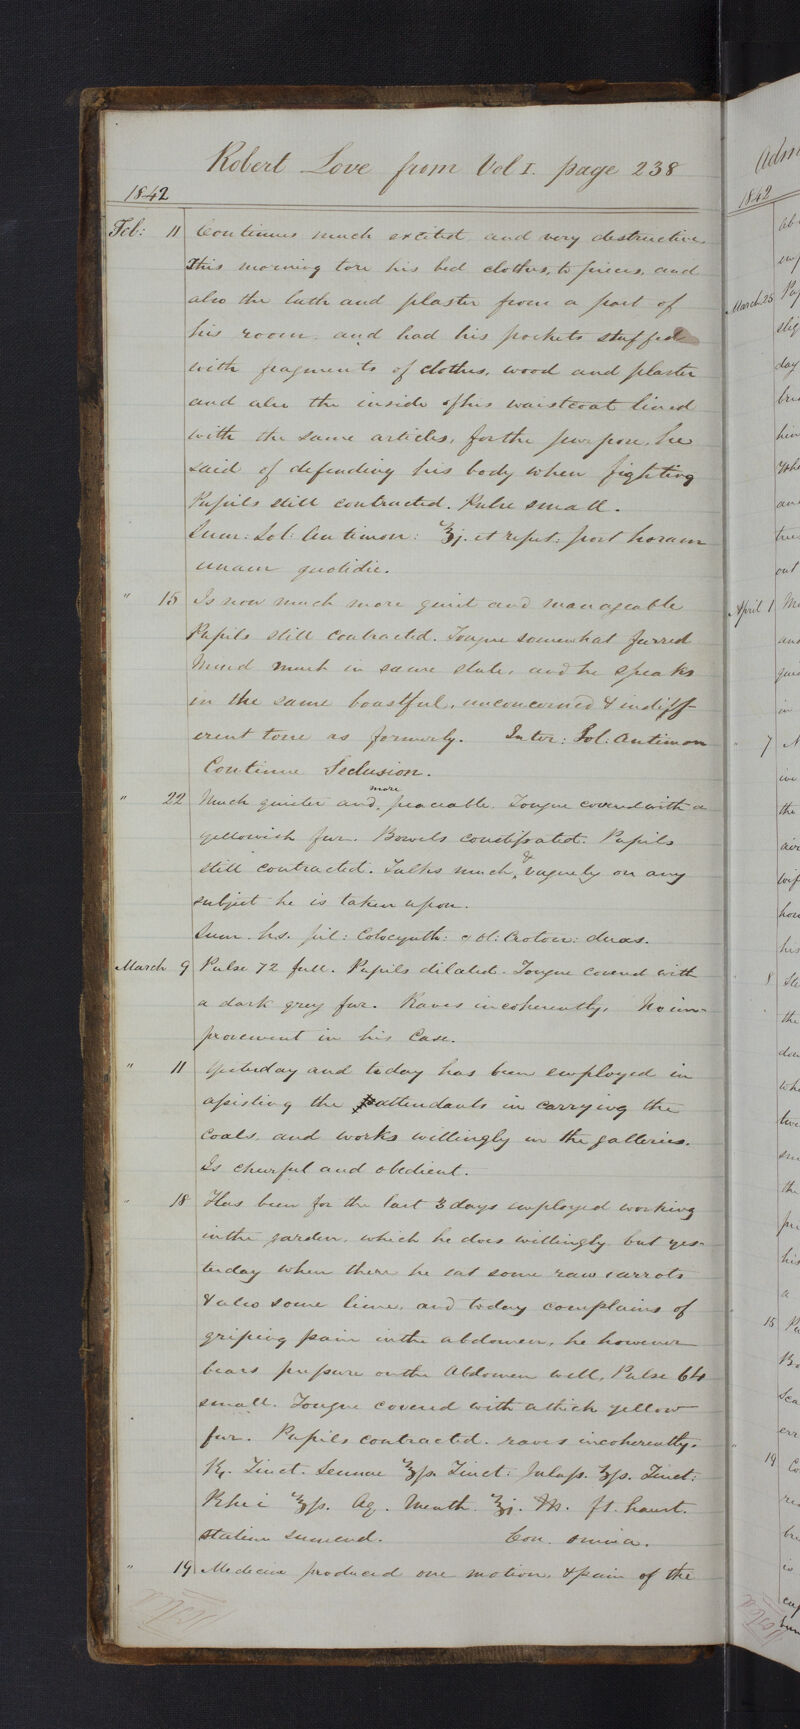 Robert Love from Vol I. page 238
1842
Feb: 11 Continues much excited and very destructive
This morning tore his bed clothes, to pieces, and
also the lath and plaster from a part of
his room, and had his pockets stuffed
with fragments of clothes, wood and plaster
and also the inside of his waistcoat lined
with the same articles, for the purpose, he
said of defending his body when fighting
Pupils still contracted. Pulse small.
Sum: Sol: Antimon: ℥j. et repet: post horam
unam quotidie.
" 15 Is now much more quiet and manageable
Pupils still contracted. Tongue somewhat furred
Mind much in same state, and he speaks
in the same boastful, unconcerned & indiff-
erent tone as formerly. Inter: Sol: Antimon
Continue Seclusion.
" 22 Much quieter and more peaceable. Tongue covered with a
yellowish fur. Bowels constipated. Pupils
still contracted. Talks much, & vaguely on any
subject he is taken upon.
Sum. hs. pil: Colocynth: Croton: duas.
March 9 Pulse 72 full. Pupils dilated. Tongue covered with
a dark grey fur. Raves incoherently, No im-
provement in his Case.
" 11 Yesterday and today has been employed in
assisting the attendants in carrying the
coals, and works willingly in the galleries.
Is cheerful and obedient.
" 18 Has been for the last 3 days employed working
in the garden, which he does willingly but yes-
terday when there he eat some raw carrots
& also some lime, and today complains of
griping pain in the abdomen, he however
bears pressure on the Abdomen well, Pulse 64
small. Tongue covered with a thick yellow
fur. Pupils contracted. raves incoherently.
Rx. Tinct. Sennae ℥ss. Tinct: Jalap. ʒss. Tinct:
Rhei ℥ss. Aq. Menth. ℥j. M. ft. haust.
statim sumend. Con. omnia.
" 19 Medicine produced one motion, & pain of the
Adm
1842
March 25
April 1
7
8
15
19